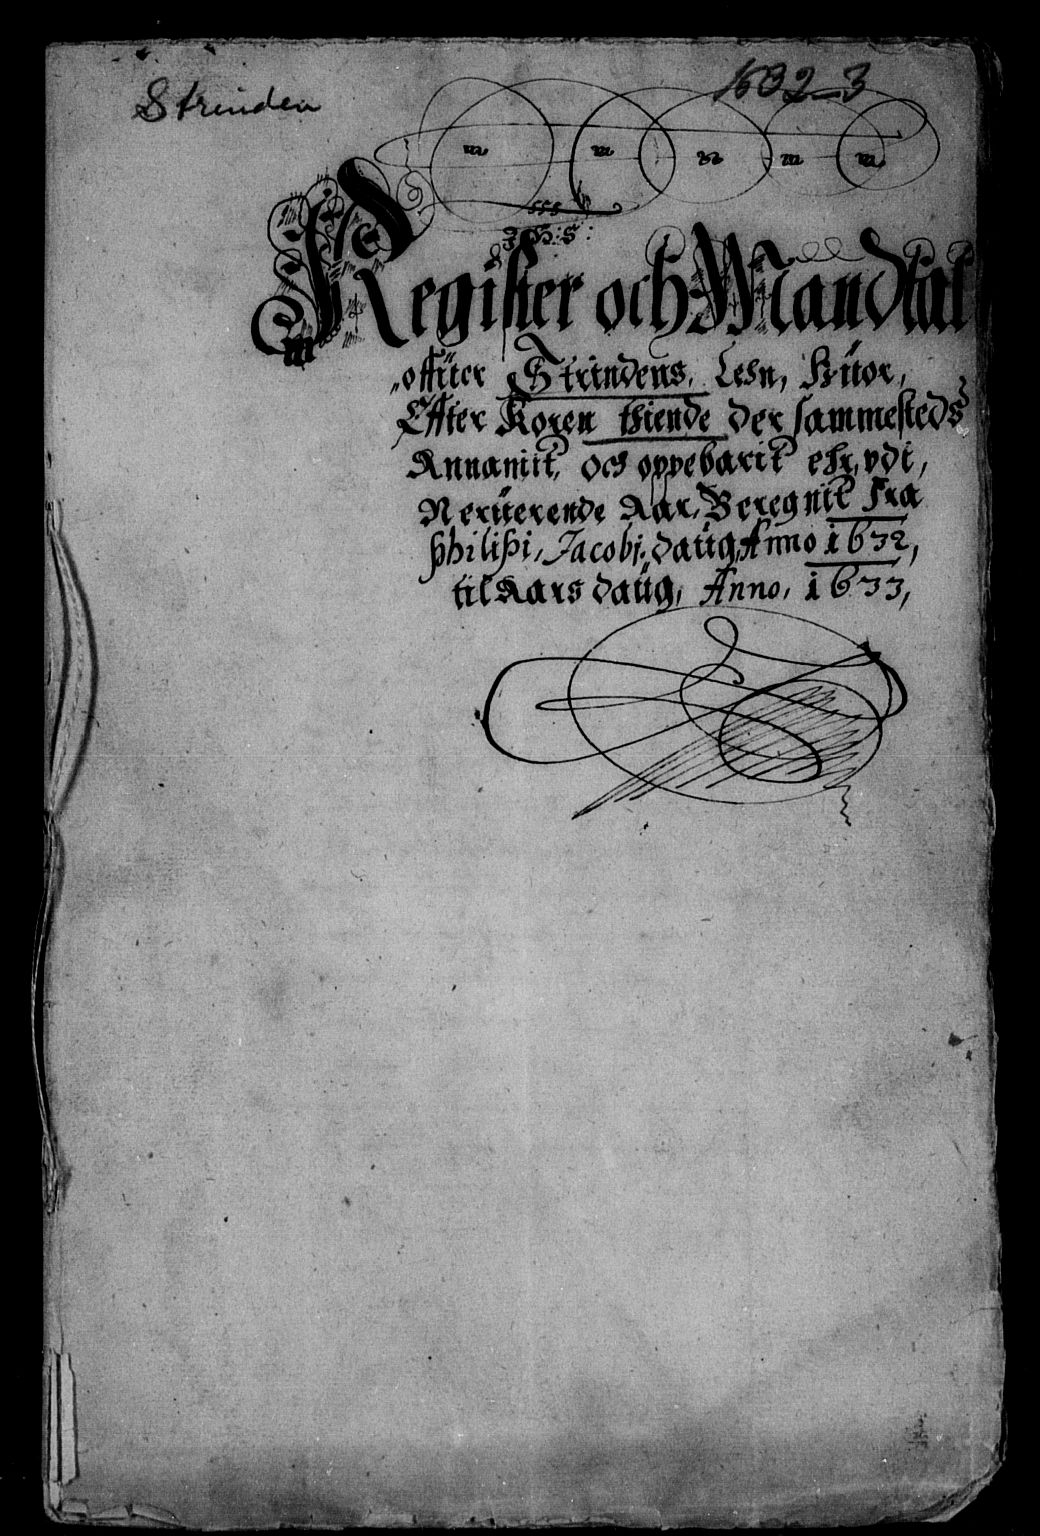 Strinden
1632-3
m m n m m
J: H: S:
Register och Mandtal
offuer Strindens, Lehn, huor,
Effter Koren thiende der sammesteds
Annamit, och oppebarit ehr, vdi,
Neruerende Aar, Beregnit Fra
philipi, Jacobi, daug, Anno 1632,
til Aars daug, Anno, 1633,